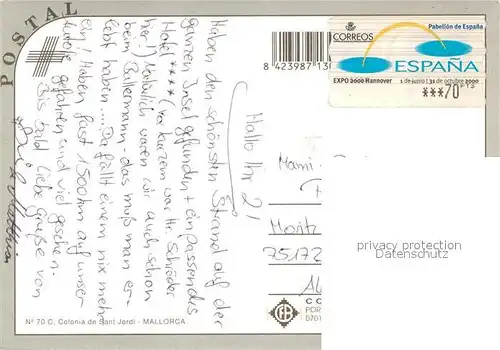 POSTAL
CORREOS
Pabellón de España
ESPAÑA
EXPO 2000 Hannover
1 de junio | 31 de octubre 2000
***70 PTS
8 423987 13
Hallo Ihr 2!
Haben den schönsten Strand auf der
ganzen Insel gefunden + ein passendes
Hotel **** (vor kurzem war Hr. Schröder
hier!) Natürlich waren wir auch schon
beim Ballermann - das muß man er-
lebt haben... Da fällt einem nix mehr
ein! Haben fast 1500 km auf unser-
Autole gefahren und viel gesehen.
Bis bald liebe Grüße von
Mami
Moritz
75172
privacy protection
Datenschutz
Nº 70 C, Colonia de Sant Jordi - MALLORCA
CO
POR
0701